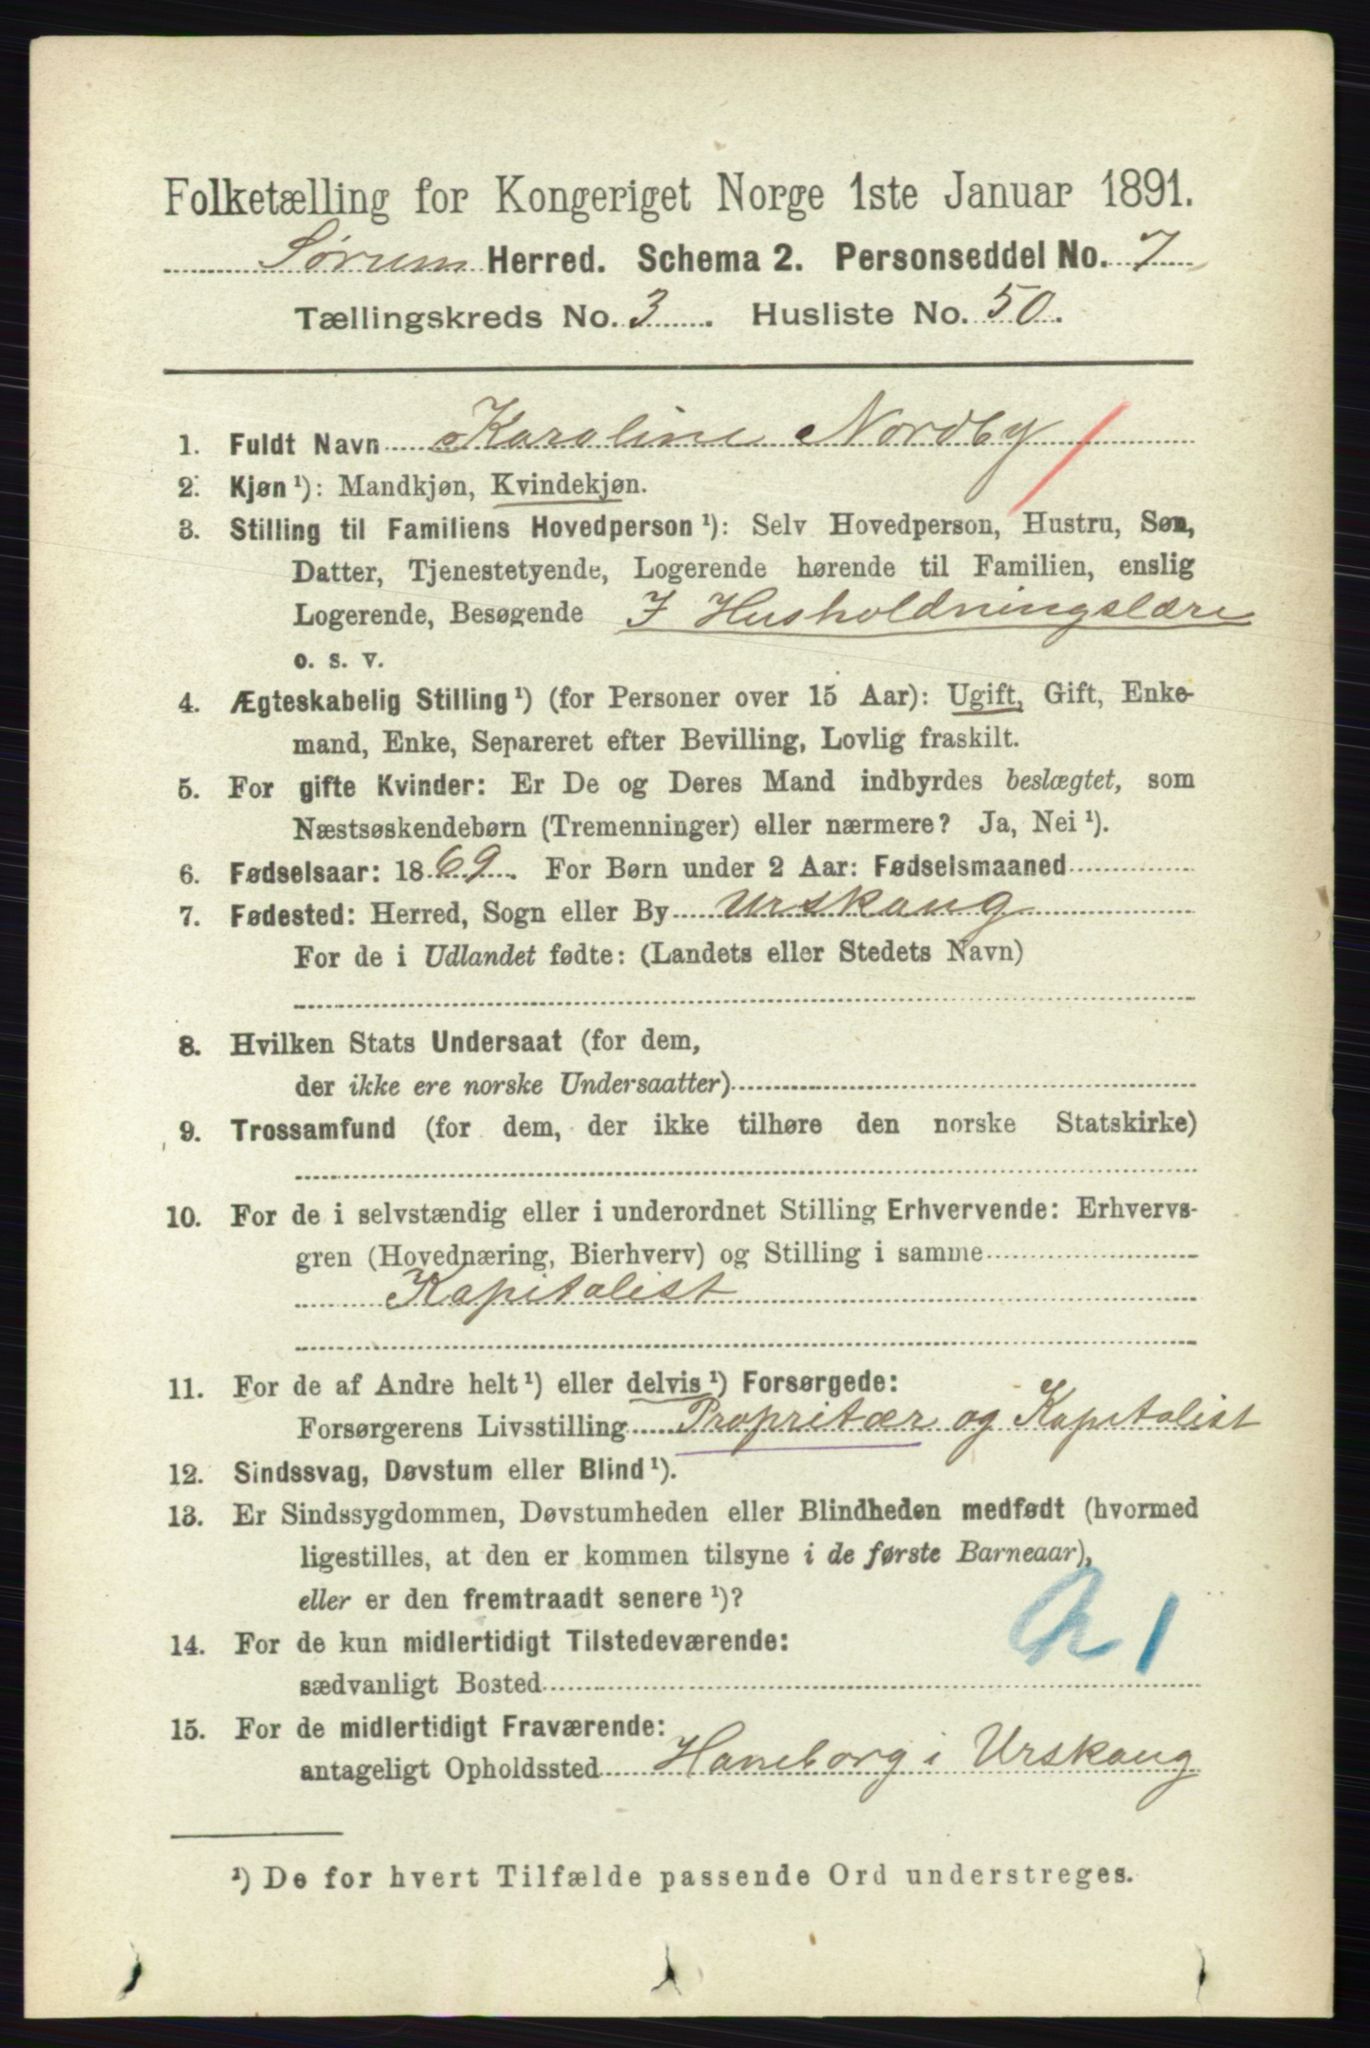 Folketælling for Kongeriget Norge 1ste Januar 1891.
Sørum Herred. Schema 2. Personseddel No. 7
Tællingskreds No. 3. Husliste No. 50.
1. Fuldt Navn Karoline Nordby
2. Kjøn ¹): Mandkjøn, Kvindekjøn.
3. Stilling til Familiens Hovedperson ¹): Selv Hovedperson, Hustru, Søn,
Datter, Tjenestetyende, Logerende hørende til Familien, enslig
Logerende, Besøgende I Husholdningslære
o. s. v.
4. Ægteskabelig Stilling ¹) (for Personer over 15 Aar): Ugift, Gift, Enke-
mand, Enke, Separeret efter Bevilling, Lovlig fraskilt.
5. For gifte Kvinder: Er De og Deres Mand indbyrdes beslægtet, som
Næstsøskendebørn (Tremenninger) eller nærmere? Ja, Nei ¹).
6. Fødselsaar: 1869. For Børn under 2 Aar: Fødselsmaaned
7. Fødested: Herred, Sogn eller By Urskoug
For de i Udlandet fødte: (Landets eller Stedets Navn)
8. Hvilken Stats Undersaat (for dem,
der ikke ere norske Undersaatter)
9. Trossamfund (for dem, der ikke tilhøre den norske Statskirke)
10. For de i selvstændig eller i underordnet Stilling Erhvervende: Erhvervs-
gren (Hovednæring, Bierhverv) og Stilling i samme
Kapitalist
11. For de af Andre helt ¹) eller delvis ¹) Forsørgede:
Forsørgerens Livsstilling Propritær og Kapitalist
12. Sindssvag, Døvstum eller Blind ¹).
13. Er Sindssygdommen, Døvstumheden eller Blindheden medfødt (hvormed
ligestilles, at den er kommen tilsyne i de første Barneaar),
eller er den fremtraadt senere ¹)?
14. For de kun midlertidigt Tilstedeværende:
sædvanligt Bosted
15. For de midlertidigt Fraværende:
antageligt Opholdssted Haneborg i Urskoug
¹) De for hvert Tilfælde passende Ord understreges.